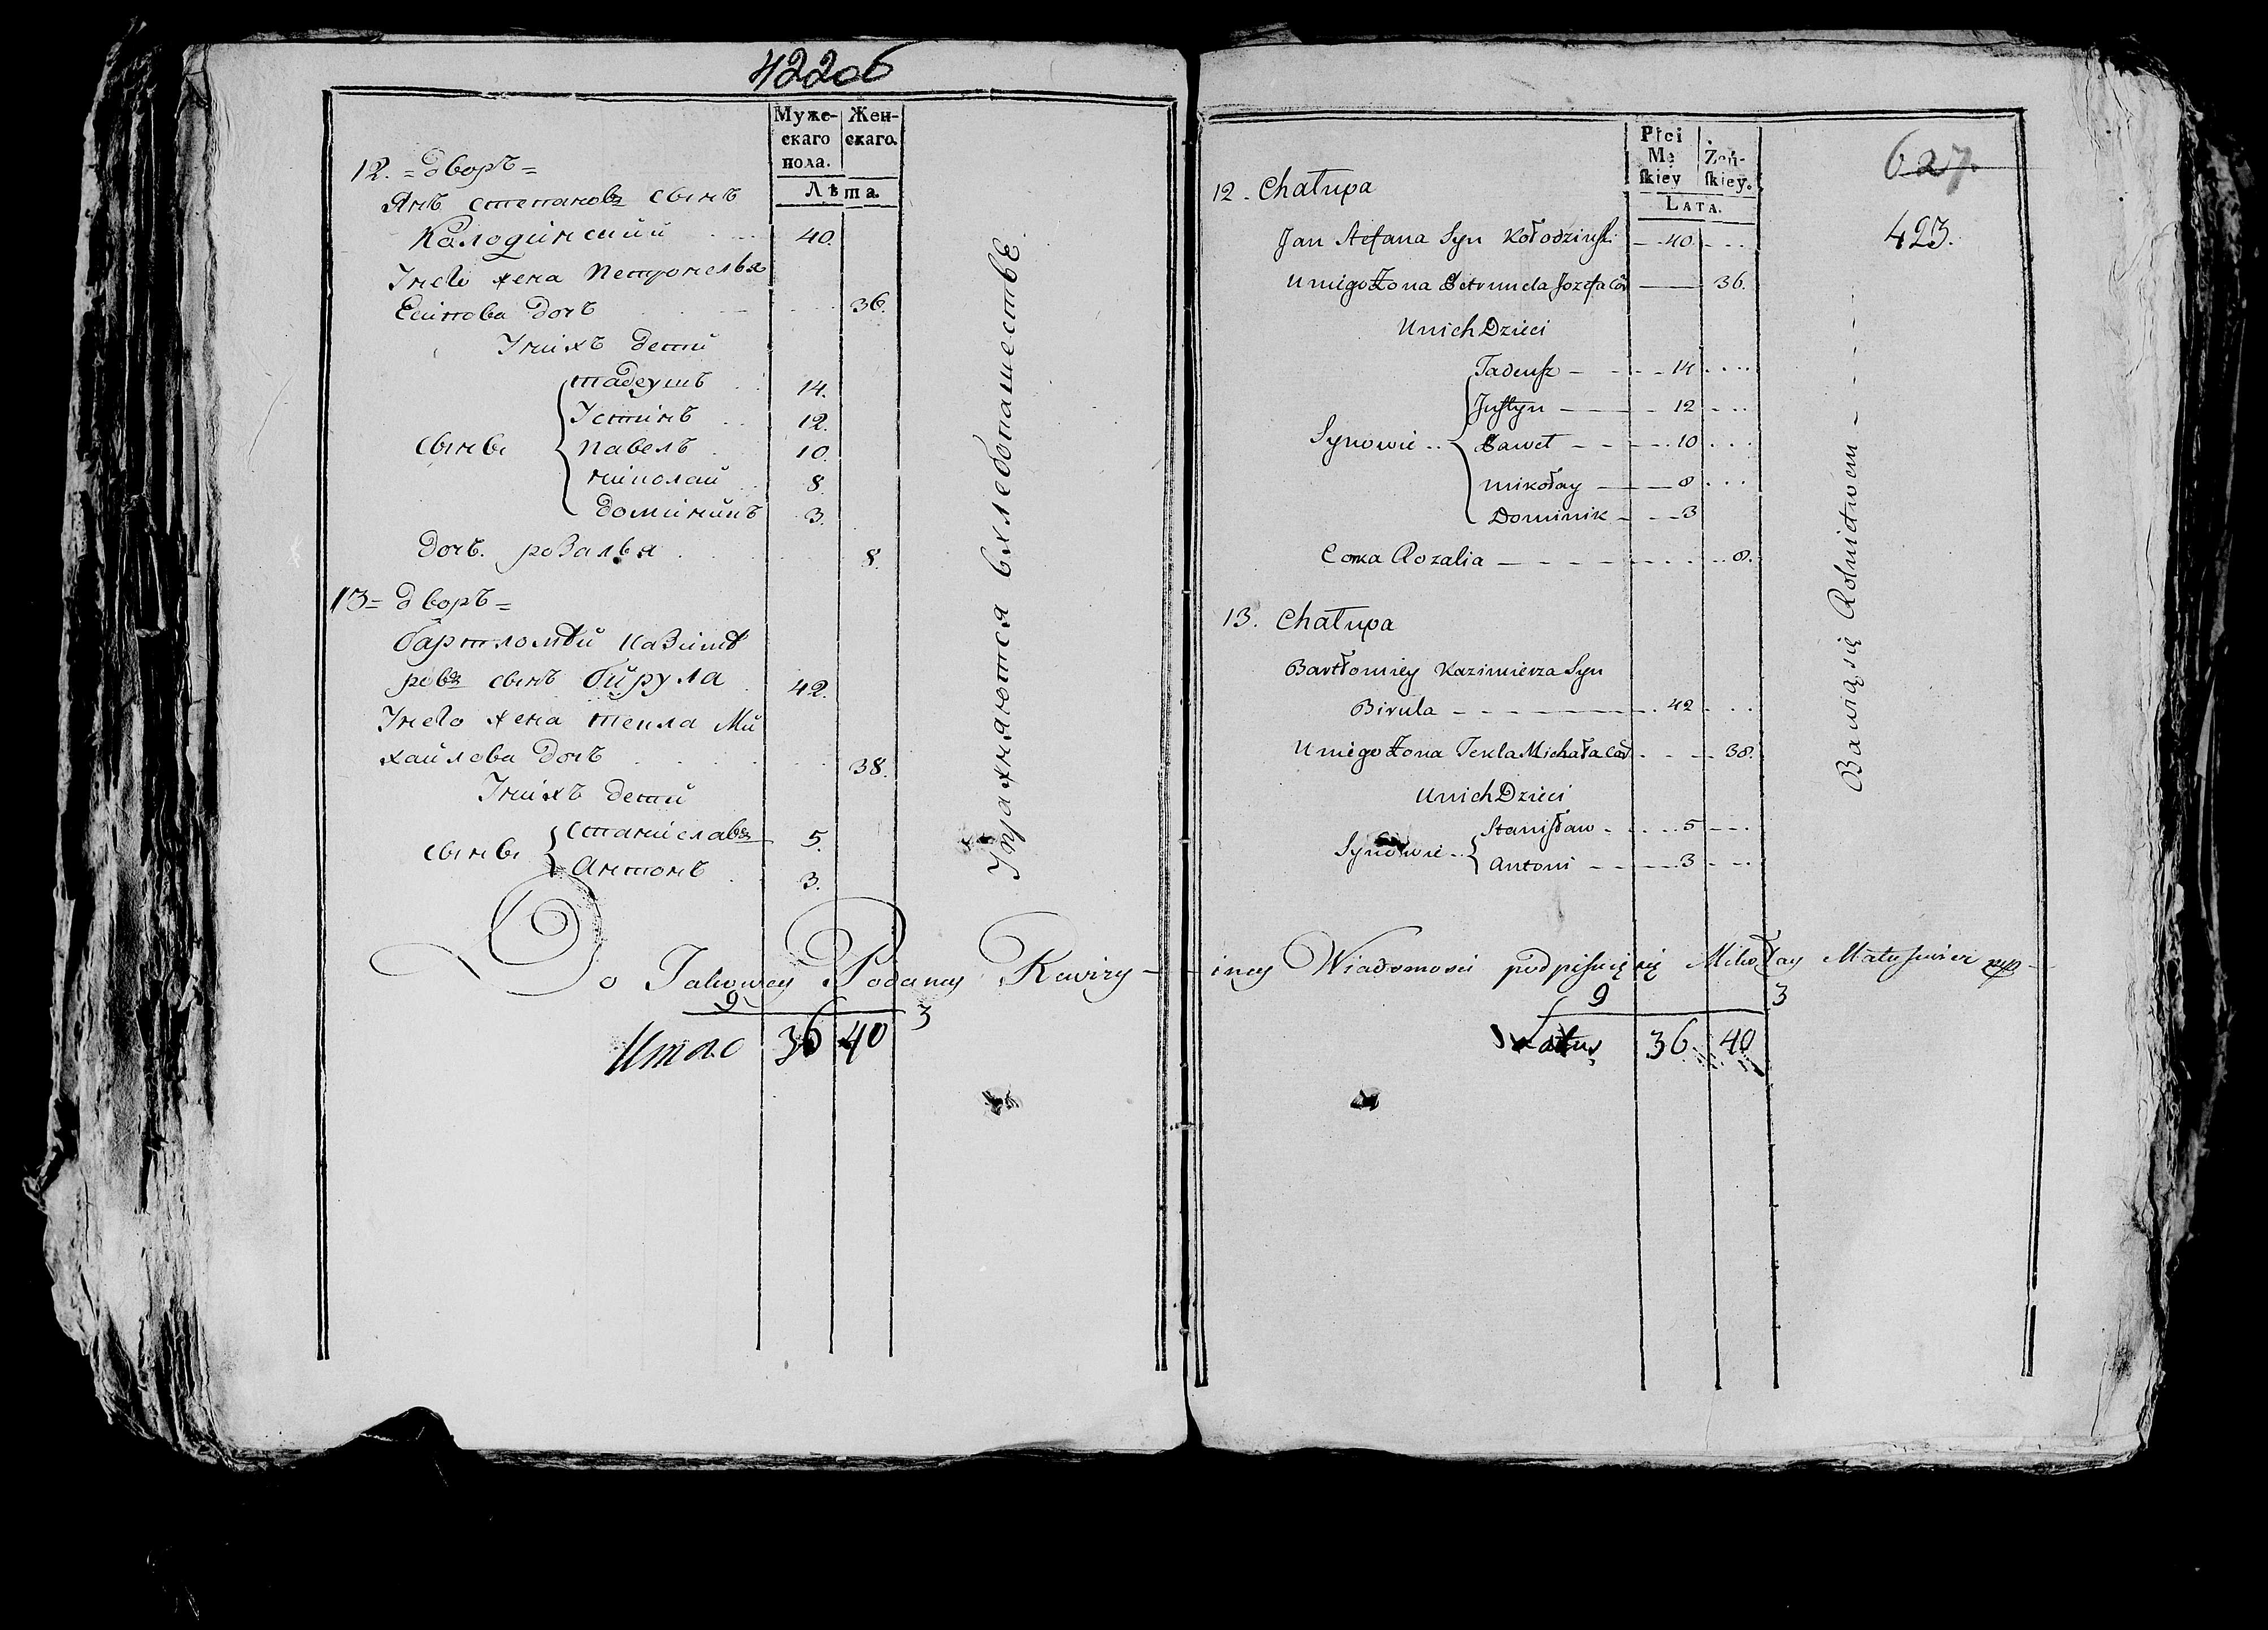 422об
Муже-
скаго
пола.
Жен-
скаго.
Лѣта.
12. = дворъ =
Янъ степановъ сынъ
Колодинский 40.
Унего жена Петронелья
Есипова дочь 36.
Унихъ дети
сыны
тадеушъ 14.
Устинъ 12.
павелъ 10.
николай 8.
доминикъ 3.
дочь. розалья 8.
13 = дворъ =
бартломѣй казимѣ
ровъ сынъ бирула 42.
Унего жена текла Ми
хайлова дочь 38.
Унихъ дети
сыны
станиславъ 5.
Антонъ 3.
Упражняются вхлебопашествѣ
Do Takowey Podaney Rewizy-
9 3
Итого 36 40
Płci
Mę
skiey
Żeń-
skiey.
LATA.
627.
423.
12. Chałupa
Jan Stefana Syn Kołodzinski 40
Uniego Żona Petrunela Jozefa Cór 36.
Unich Dzieci
Synowie
Tadeusz 14
Justyn 12
Paweł 10
Mikołay 8
Dominik 3
Corka Rozalia 8.
13. Chałupa
Bartłomiey Kazimierza Syn
Birula 42
Uniego Żona Tekla Michała Cór 38.
Unich Dzieci
Synowie
Stanisław 5
Antoni 3
Bawią się Rolnictwem
iney Wiadomosci podpisuię się Mikołay Matusewicz
9 3
Latus 36. 40